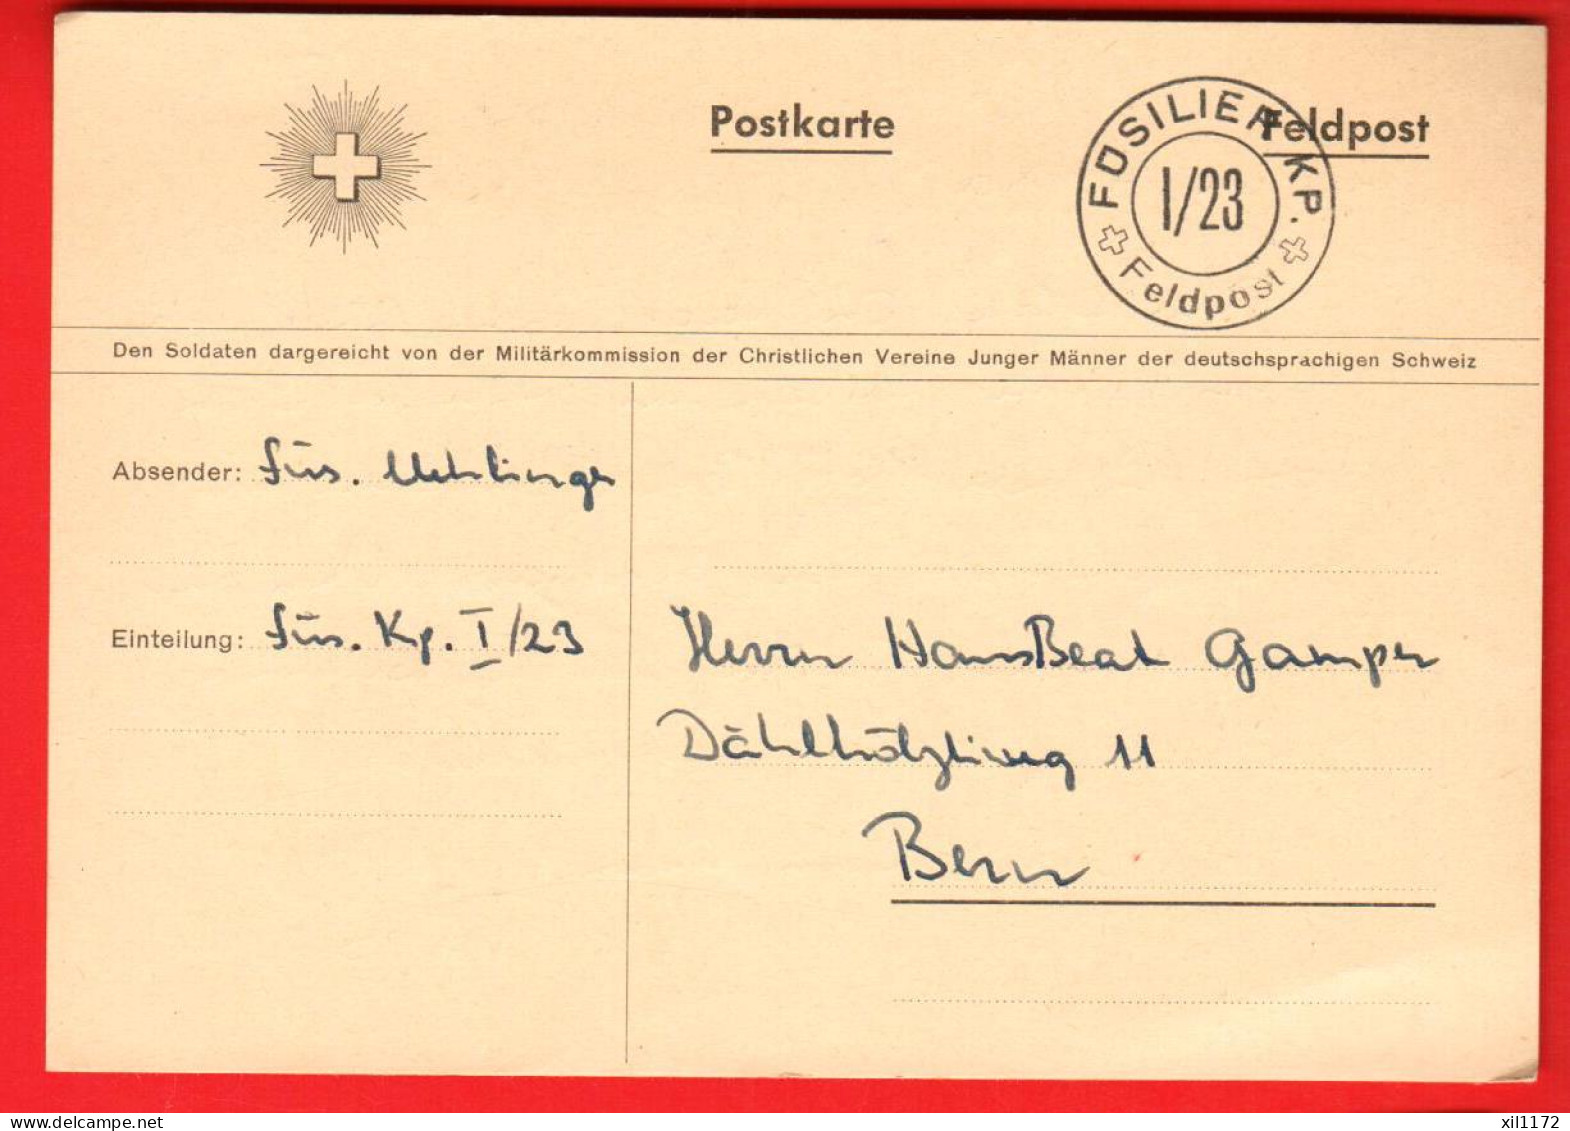 Postkarte
Feldpost
FÜSILIER KP.
I/23
Feldpost
Den Soldaten dargereicht von der Militärkommission der Christlichen Vereine Junger Männer der deutschsprachigen Schweiz
Absender: Füs. Uehlinger
Einteilung: Füs. Kp. I/23
Herrn HansBeat Gamper
Dählhölzliweg 11
Bern
www.delcampe.net
xil1172